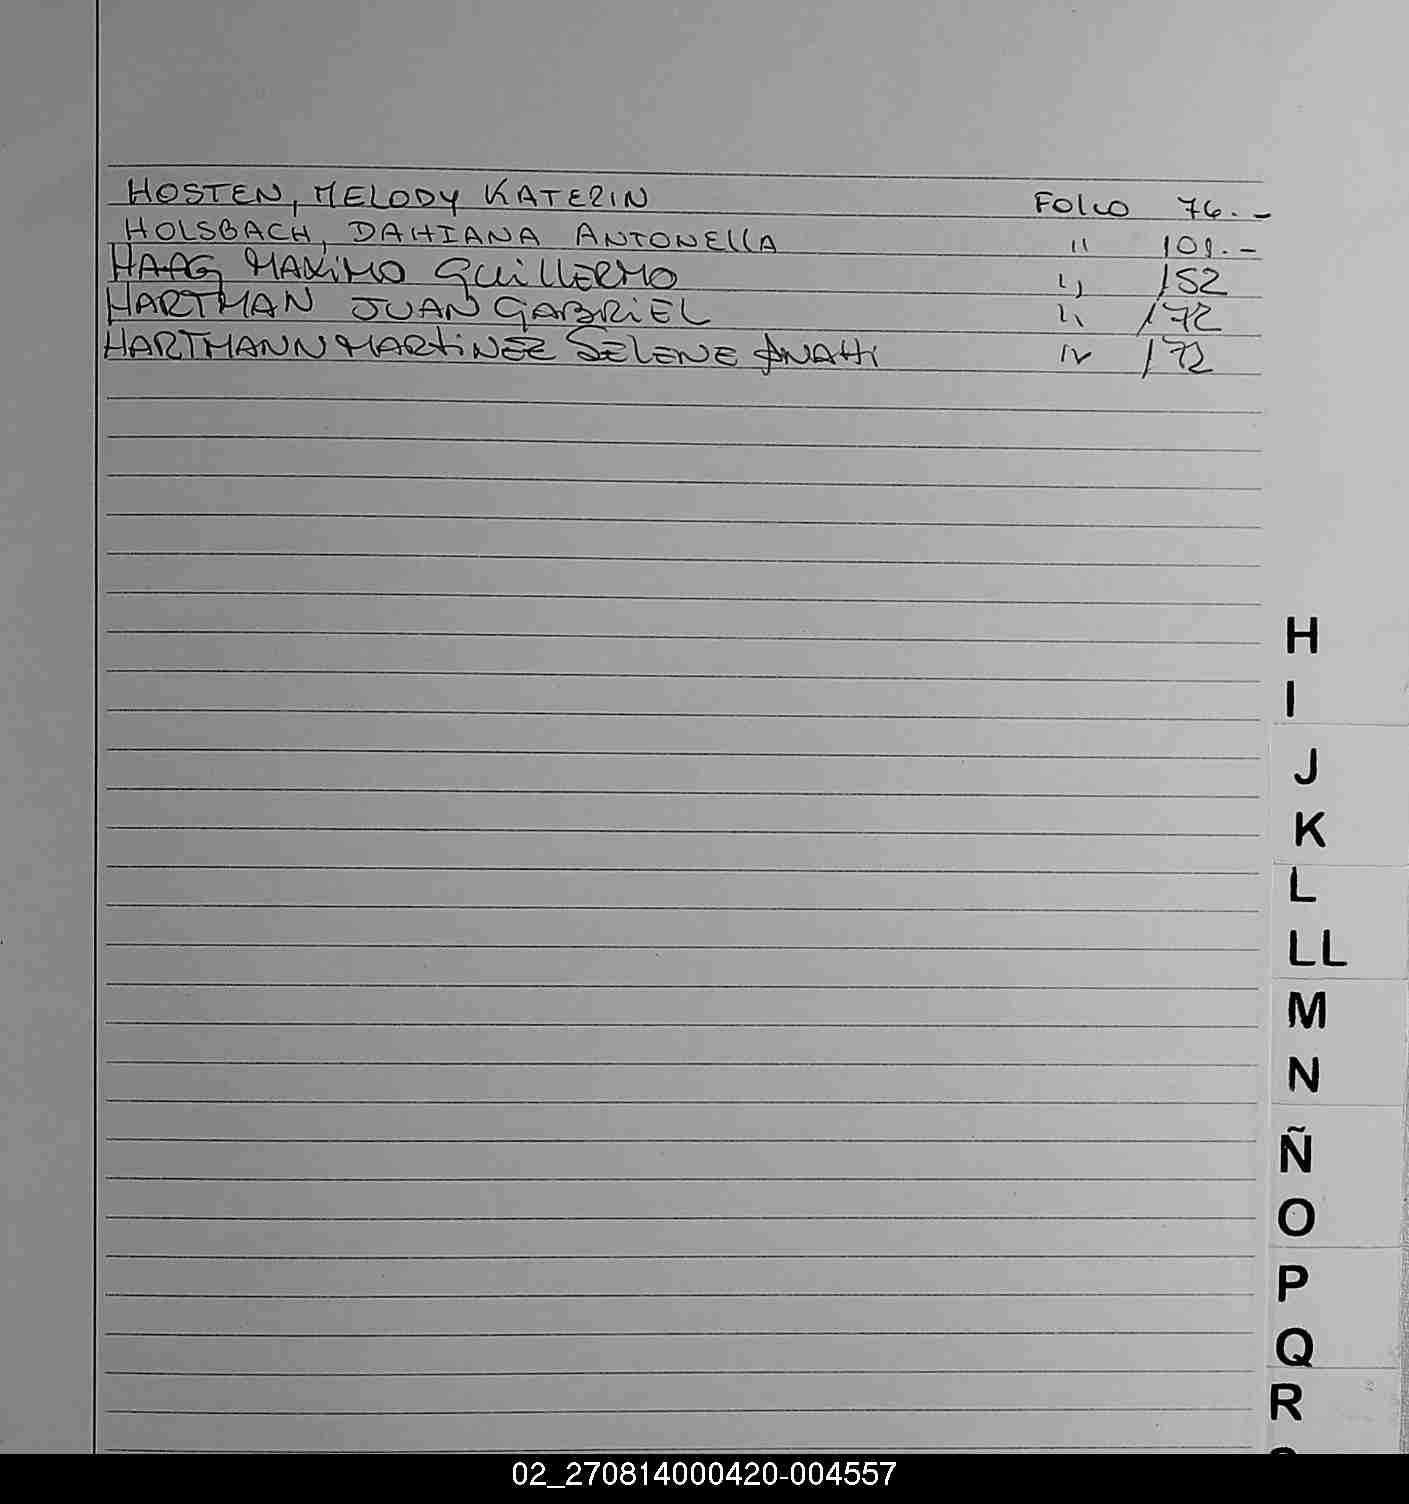 HOSTEN, MELODY KATERIN FOLIO 76.-
HOLSBACH, DAHIANA ANTONELLA " 101.-
HAAG MAXIMO GUILLERMO " 152
HARTMAN JUAN GABRIEL " 172
HARTMANN MARTINEZ SELENE ANAHI " 172
H
I
J
K
L
LL
M
N
Ñ
O
P
Q
R
02_270814000420-004557